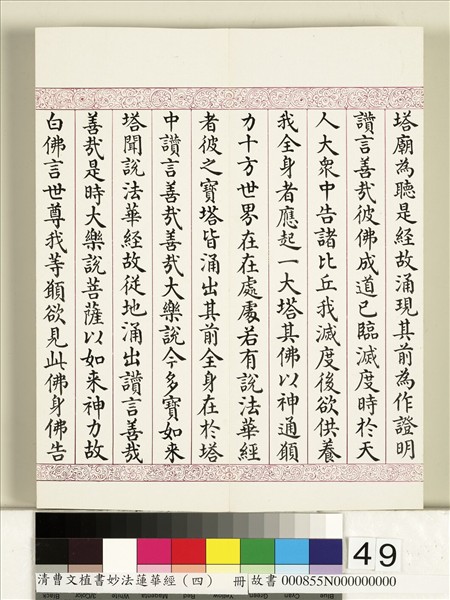 塔廟為聽是經故涌現其前為作證明
讚言善㢤彼佛成道已臨滅度時於天
人大衆中告諸比丘我滅度後欲供養
我全身者應起一大塔其佛以神通願
力十方世界在在處處若有說法華經
者彼之寶塔皆涌出其前全身在於塔
中讚言善㢤善㢤大樂說今多寶如来
塔聞說法華経故從地涌出讚言善㢤
善㢤是時大樂說菩薩以如来神力故
白佛言世尊我等願欲見此佛身佛告
49
清曹文植書妙法蓮華經（四） 冊 故書 000855N000000000